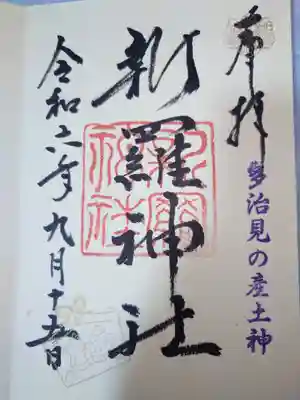 奉拝
多治見の産土神
新羅神社
新羅神社
令和六年九月十五日